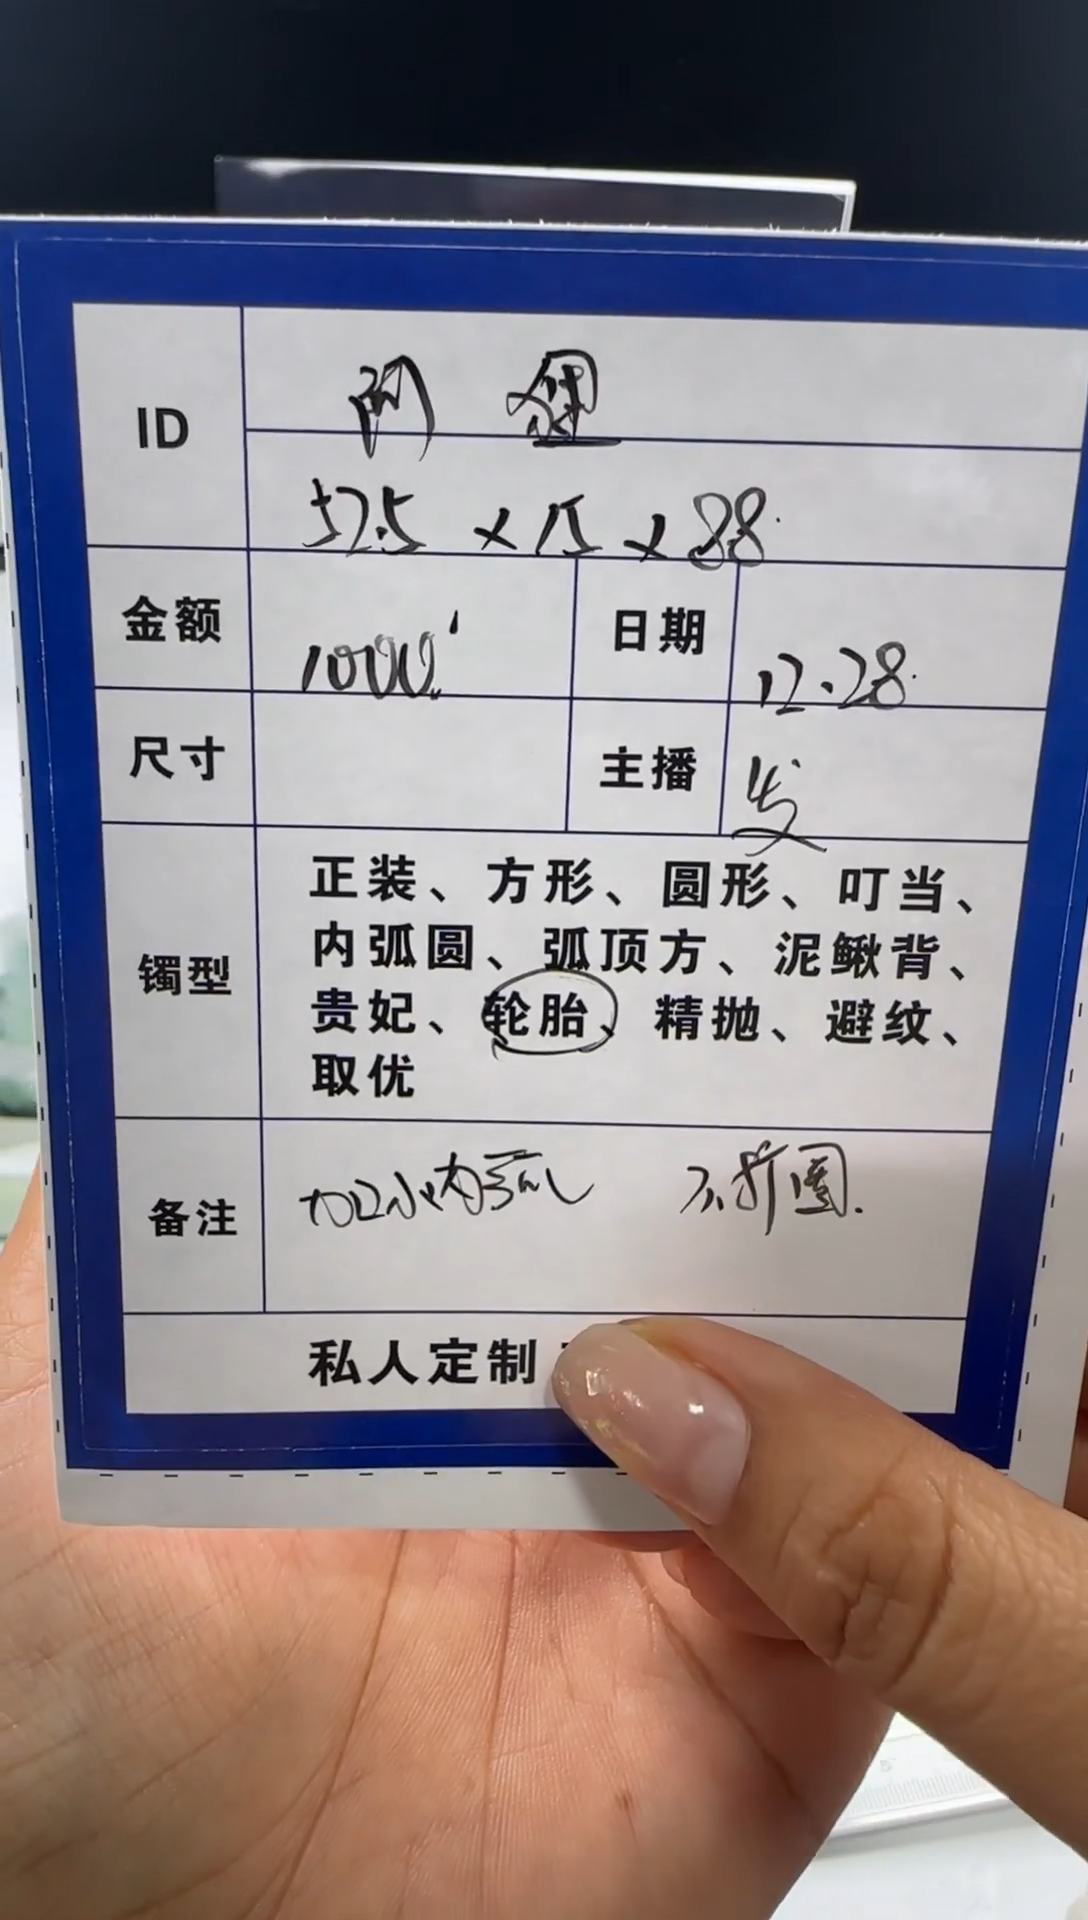 ID
52.5 × 15 × 8.8
金额 1000 日期 12.28
尺寸 主播
镯型 正装、方形、圆形、叮当、
内弧圆、弧顶方、泥鳅背、
贵妃、轮胎、精抛、避纹、
取优
备注 加小内弧 不折圈.
私人定制